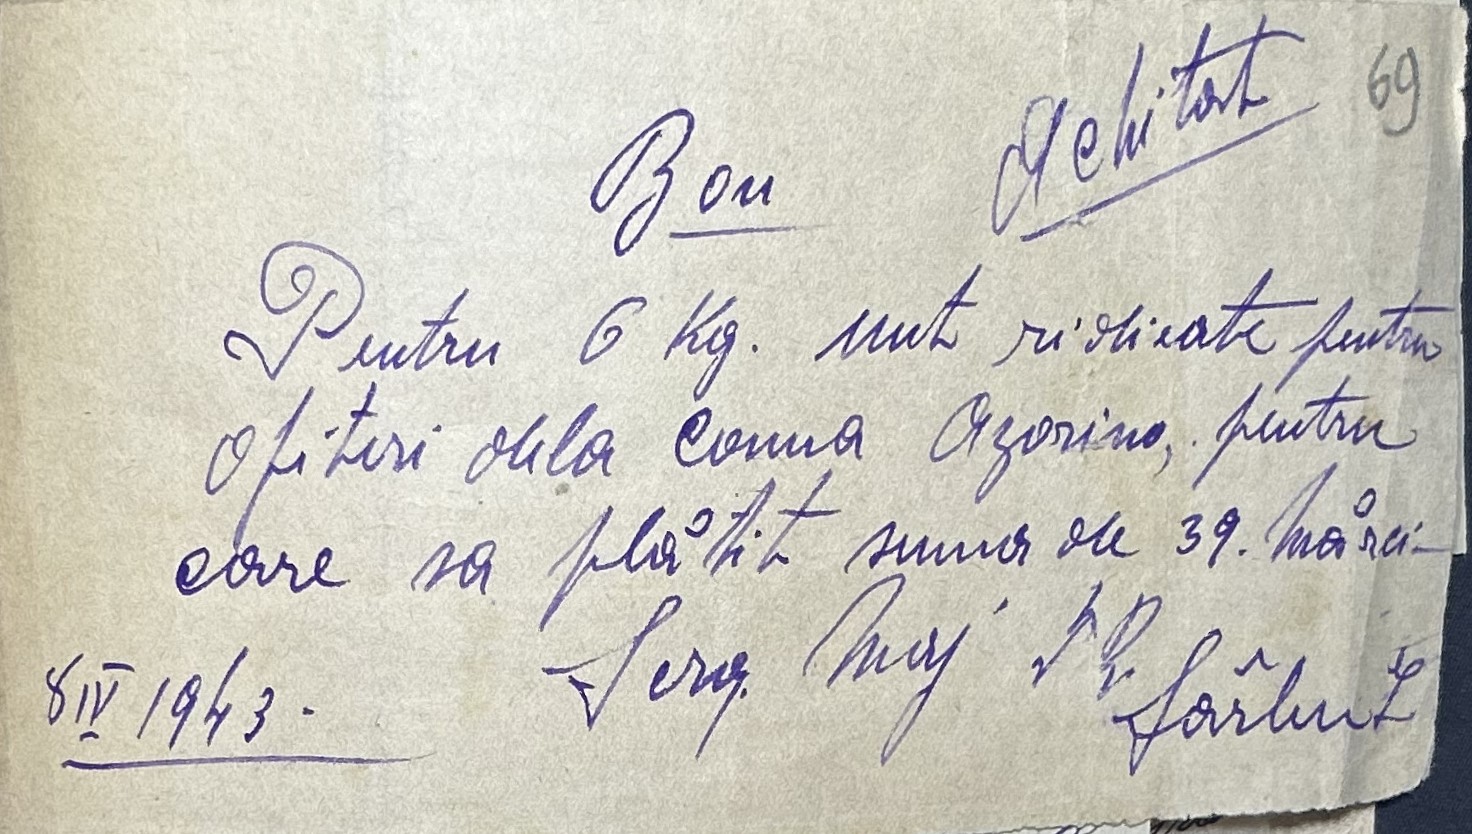 69
Achitat
Bon
Pentru 6 Kg. unt ridicate pentru
ofiteri dela comna Azorino, pentru
care sa plătit suma de 39. mărci-
Serg. Maj
Sârbu I
8 IV 1943.